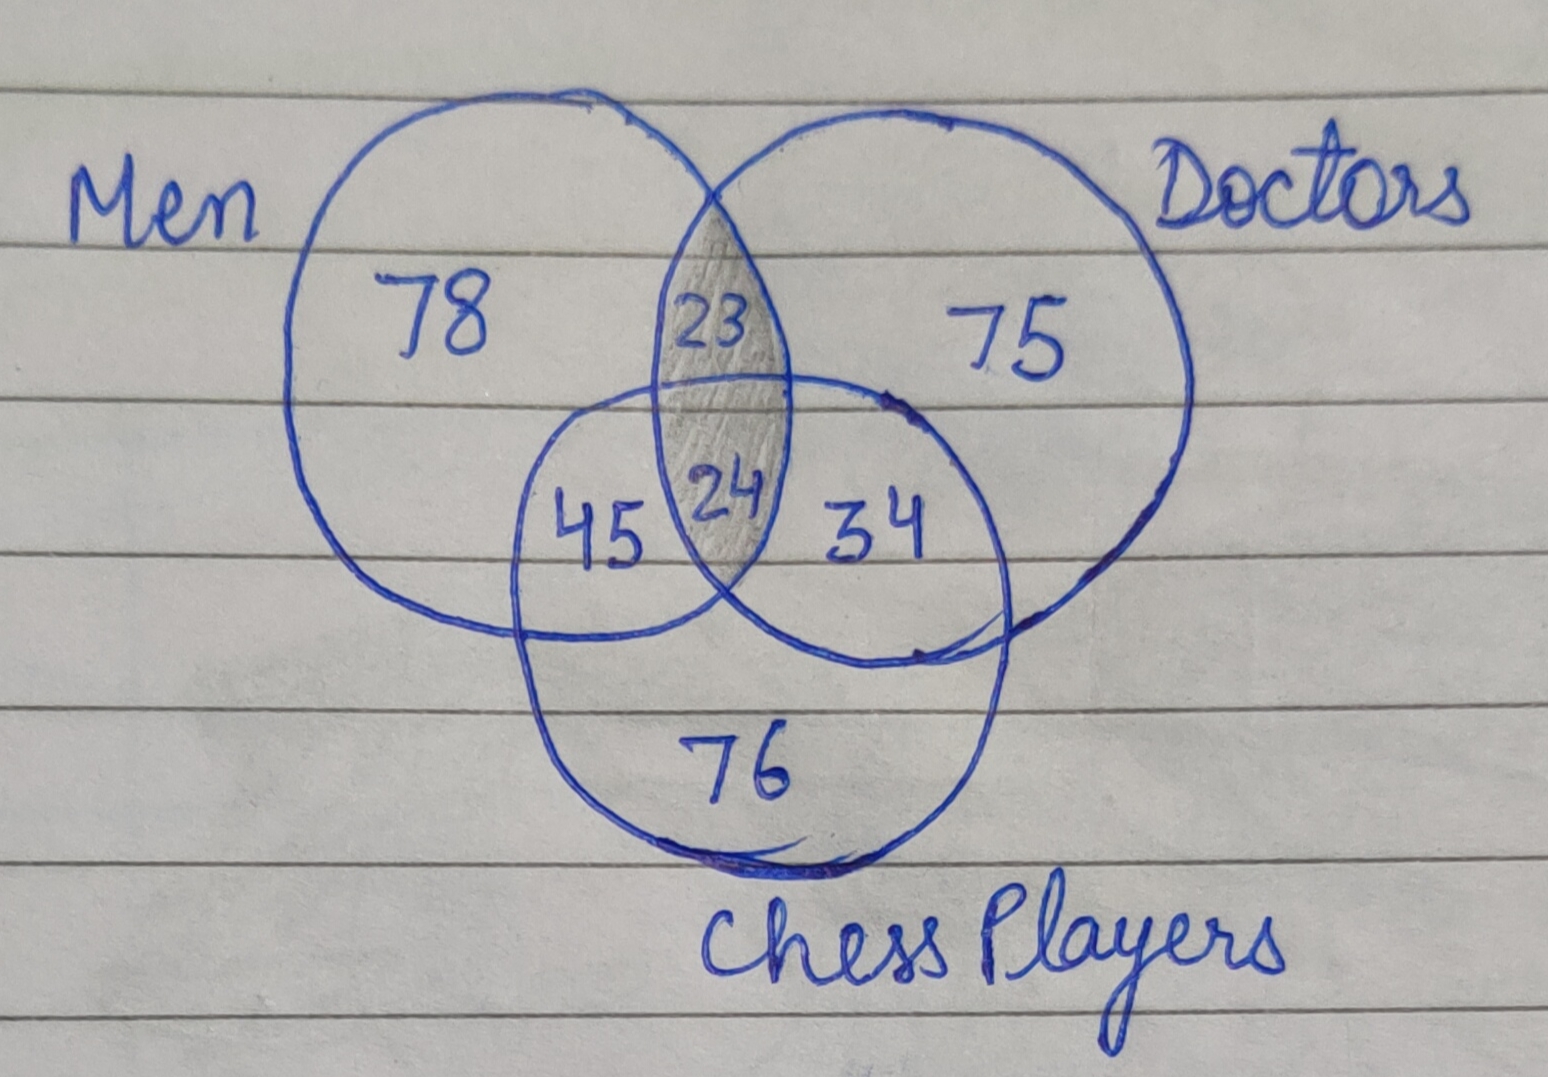 Men
Doctors
78
23
75
45
24
34
76
Chess Players